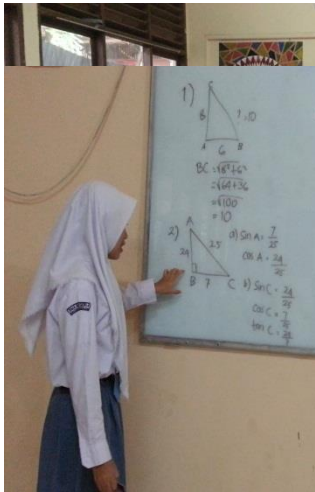 1)
C
8
?=10
A
6
B
BC = √8²+6²
= √64+36
= √100
= 10
2)
A
24
25
B
7
C
a) Sin A = 7/25
cos A = 24/25
b) Sin C = 24/25
cos C = 7/25
tan C = 24/7